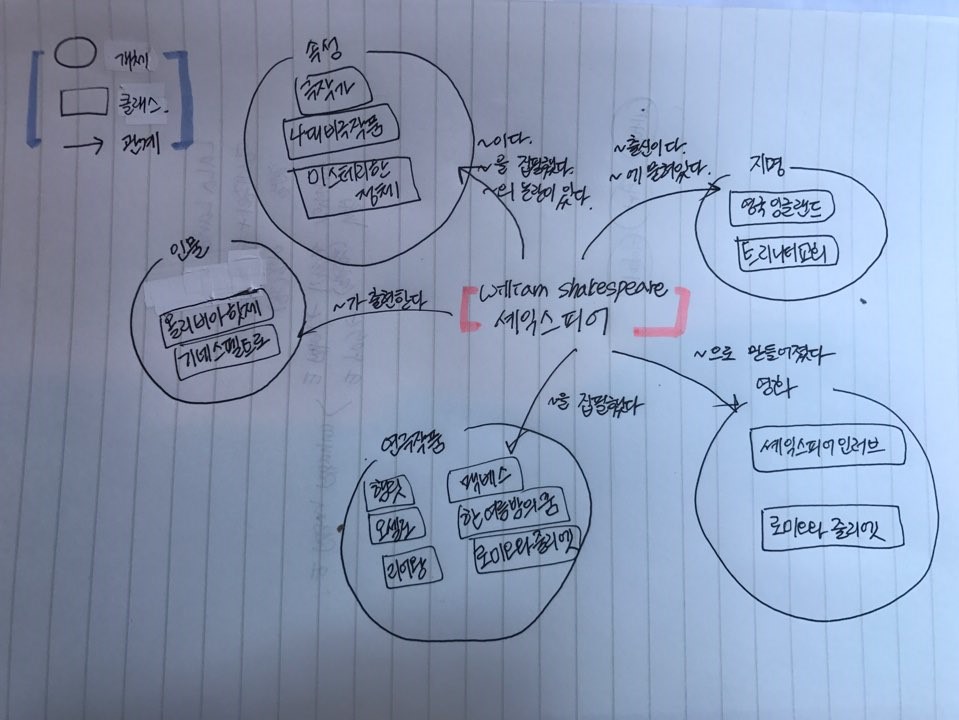 개체
클래스
관계
속성
극작가
4대비극작품
미스테리한
정체
~이다.
~을 집필했다.
~의 논란이 있다.
~출신이다.
~에 묻혀있다.
지명
영국 잉글랜드
트리니티교회
인물
올리비아 핫세
기네스펠트로
~가 출현한다
William shakespeare
셰익스피어
~을 집필했다
~으로 만들어졌다
영화
셰익스피어 인 러브
로미오와 줄리엣
연극작품
햄릿
맥베스
오셀로
한여름밤의 꿈
리어왕
로미오와 줄리엣